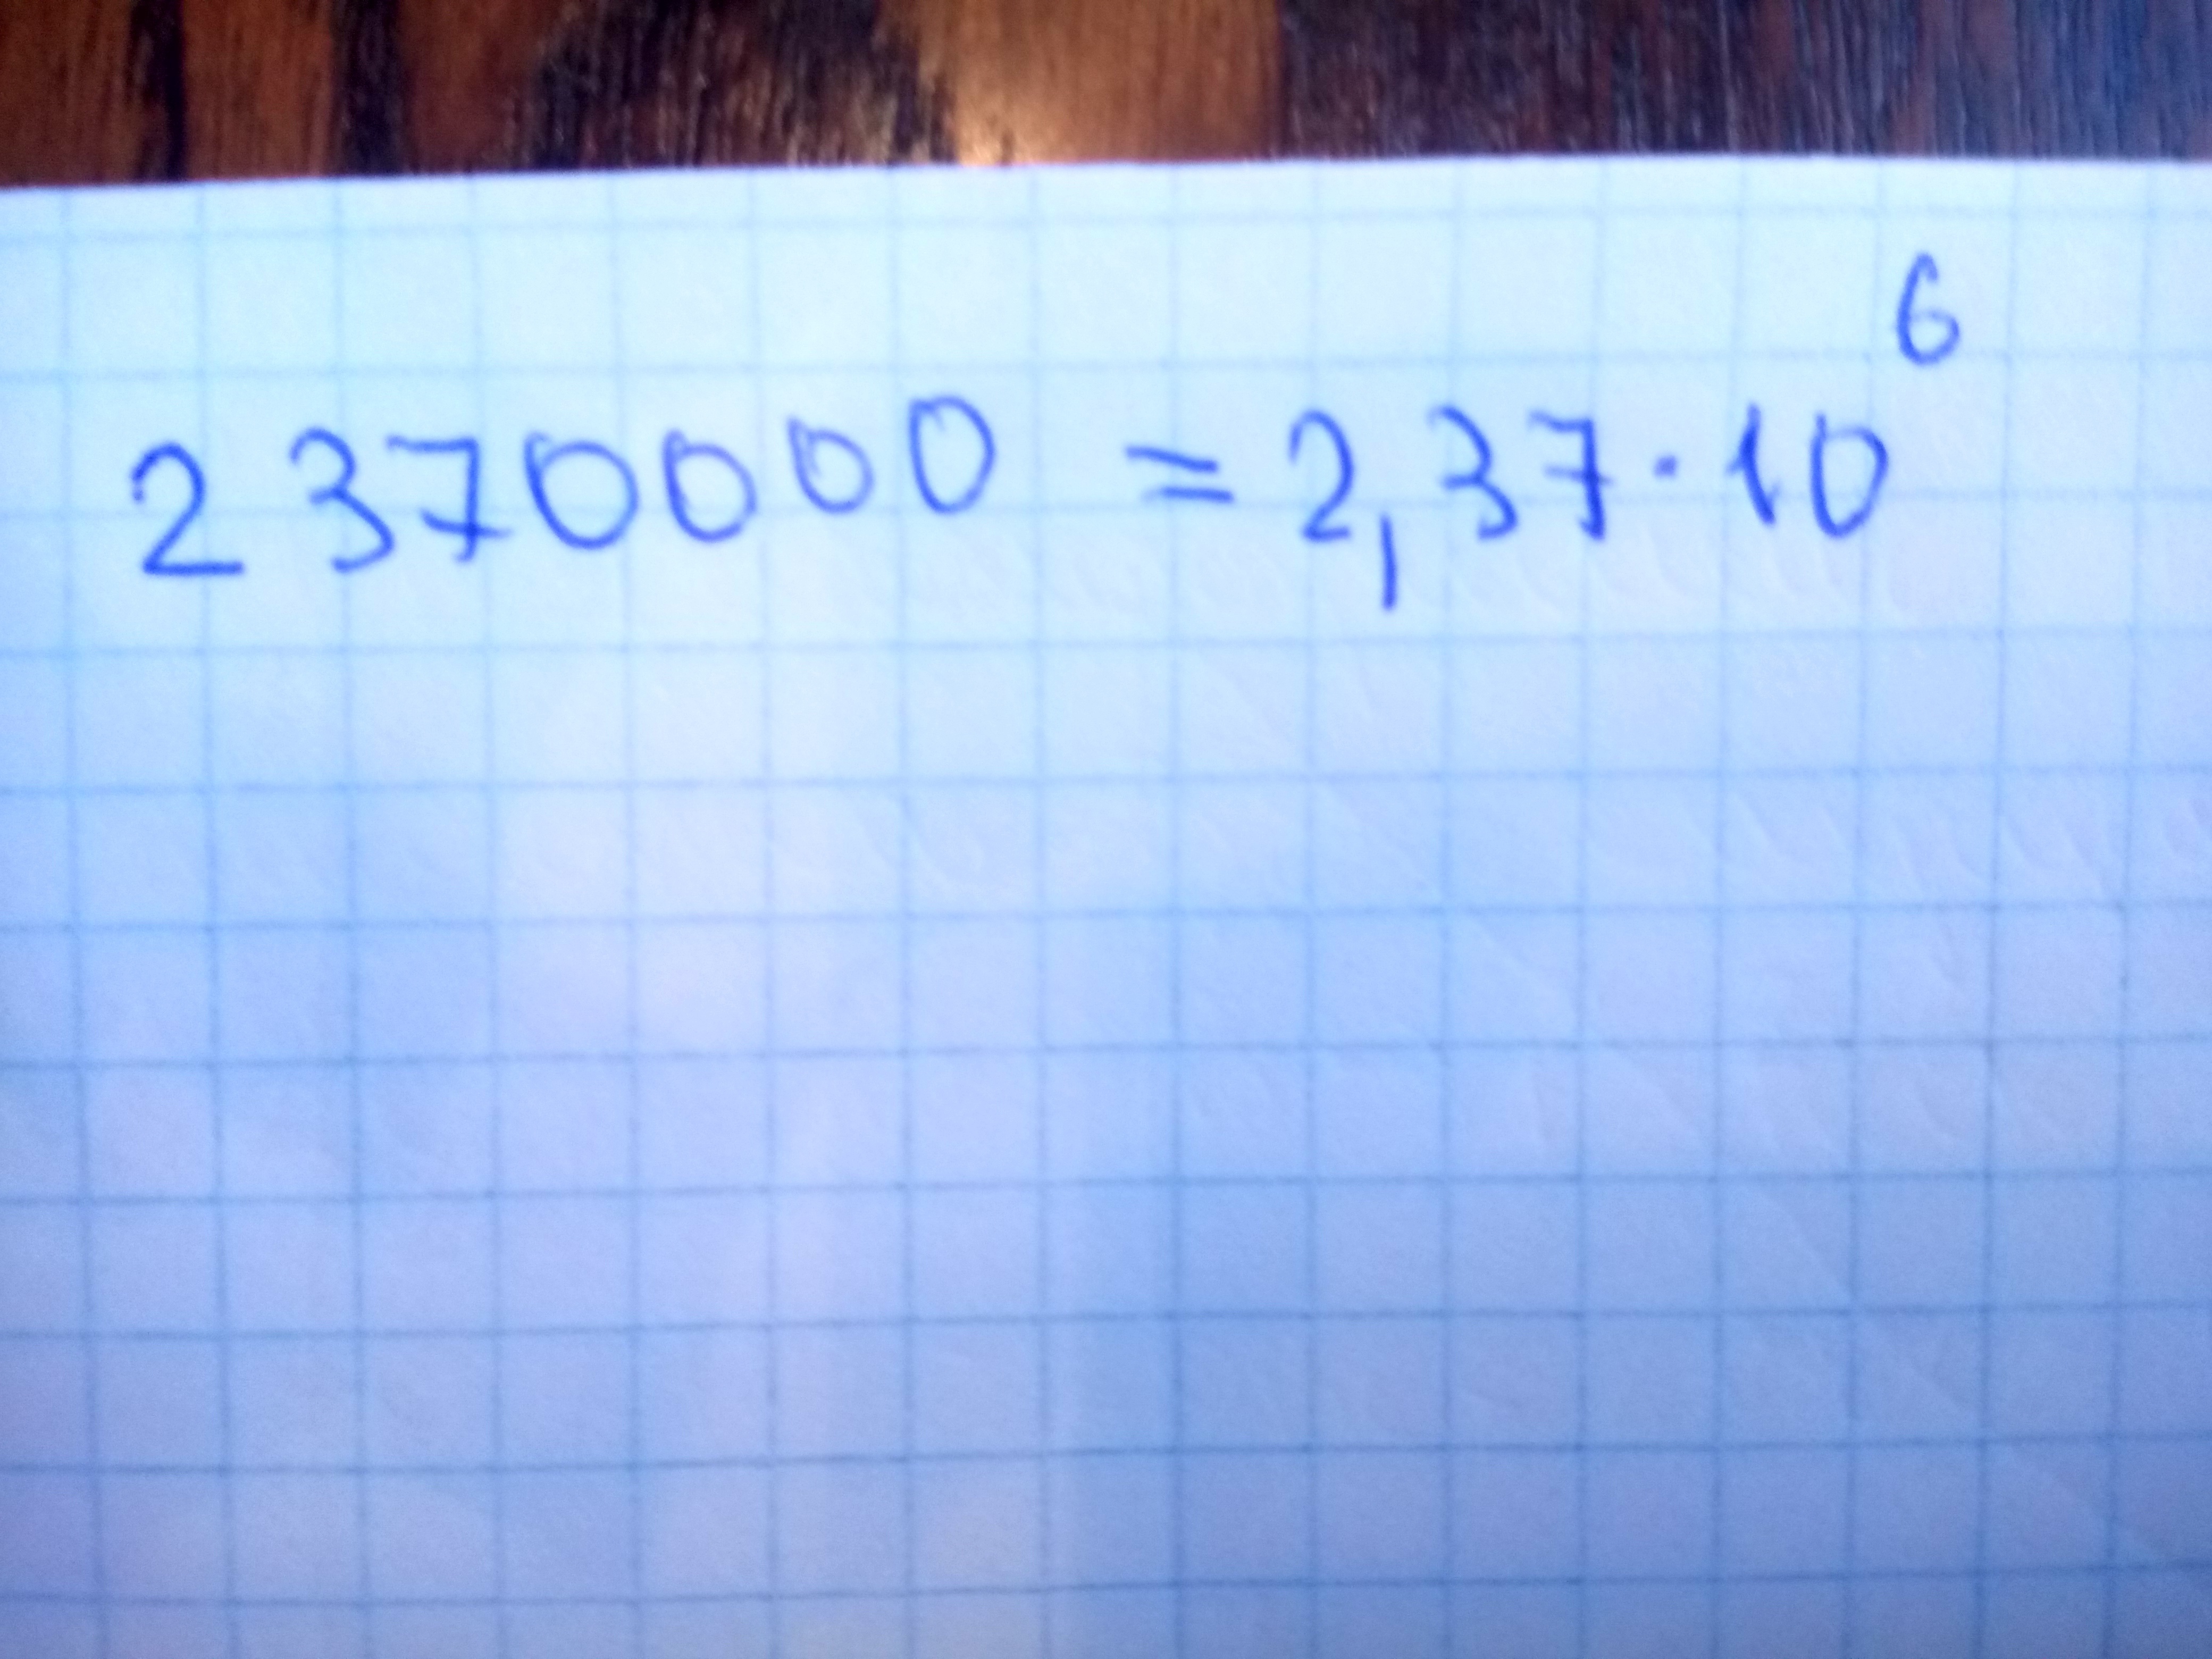 2370000 = 2,37·10⁶